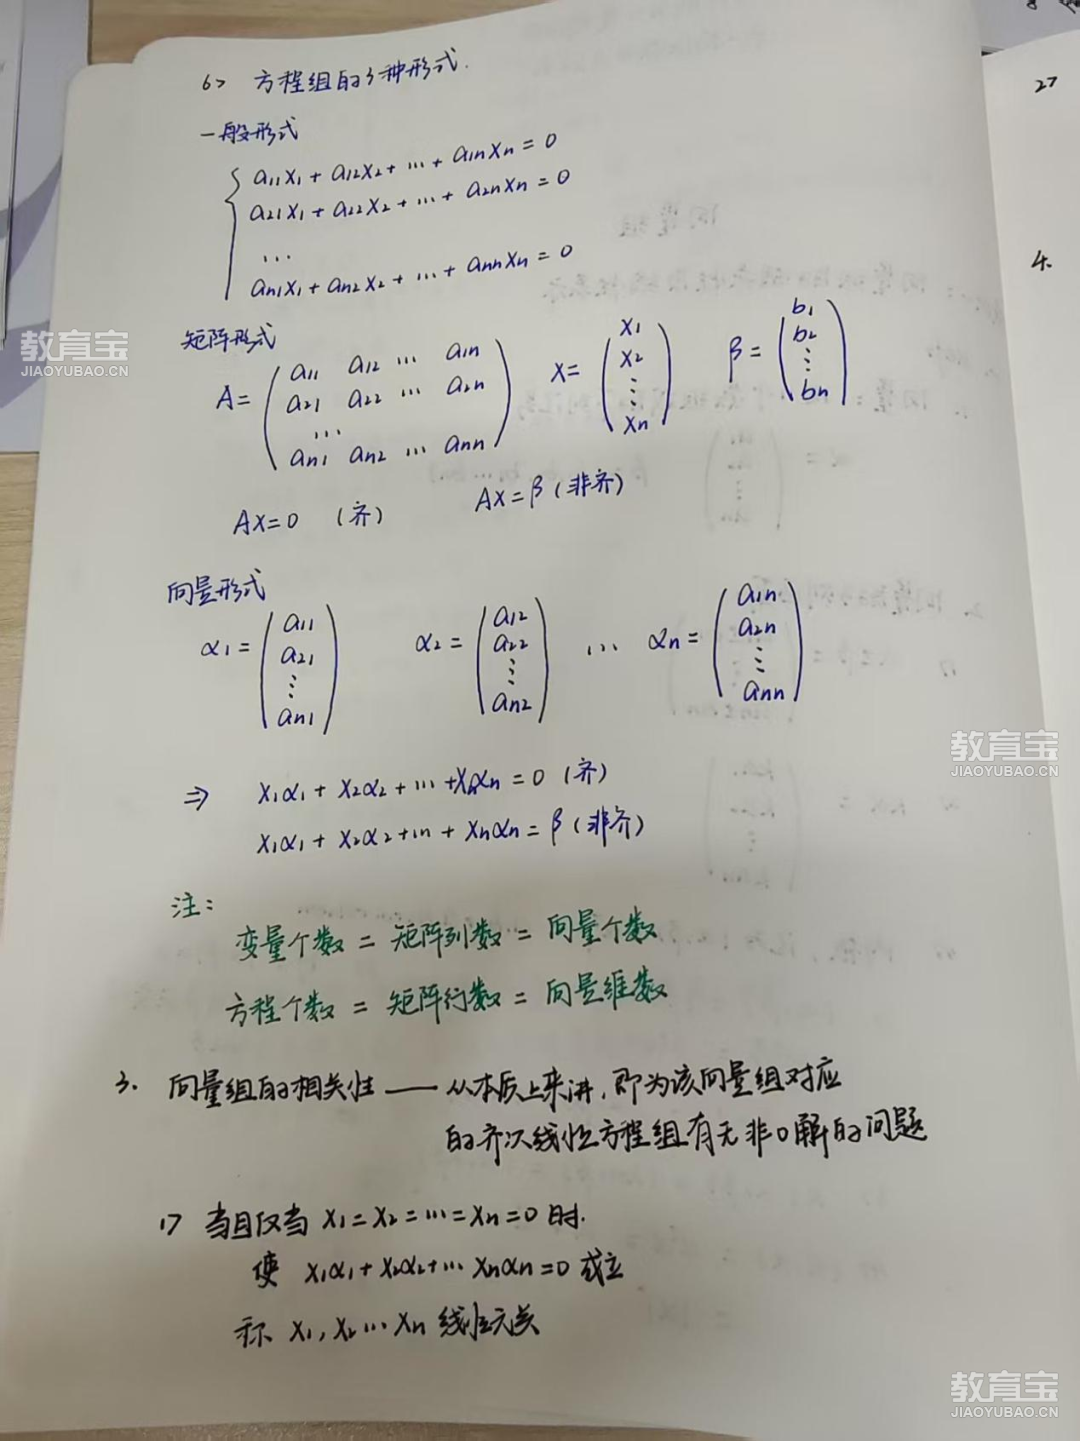 6> 方程组的3种形式.
一般形式
a11x1 + a12x2 + ... + a1nxn = 0
a21x1 + a22x2 + ... + a2nxn = 0
...
an1x1 + an2x2 + ... + annxn = 0
矩阵形式
A= ( a11 a12 ... a1n
a21 a22 ... a2n
...
an1 an2 ... ann )
x= ( x1 x2 ⋮ xn )
β= ( b1 b2 ⋮ bn )
Ax=0 (齐)
Ax=β (非齐)
向量形式
α1= ( a11 a21 ⋮ an1 )
α2= ( a12 a22 ⋮ an2 )
... αn= ( a1n a2n ⋮ ann )
⇒ x1α1 + x2α2 + ... + xnαn = 0 (齐)
x1α1 + x2α2 + ... + xnαn = β (非齐)
注:
变量个数 = 矩阵列数 = 向量个数
方程个数 = 矩阵行数 = 向量维数
3. 向量组的相关性 —— 从本质上来讲,即为该向量组对应
的齐次线性方程组有无非0解的问题
1> 当且仅当 x1=x2=...=xn=0 时.
使 x1α1 + x2α2 + ... xnαn = 0 成立
称 x1, x2 ... xn 线性无关
27
4.
教育宝
JIAOYUBAO.CN
教育宝
JIAOYUBAO.CN
教育宝
JIAOYUBAO.CN